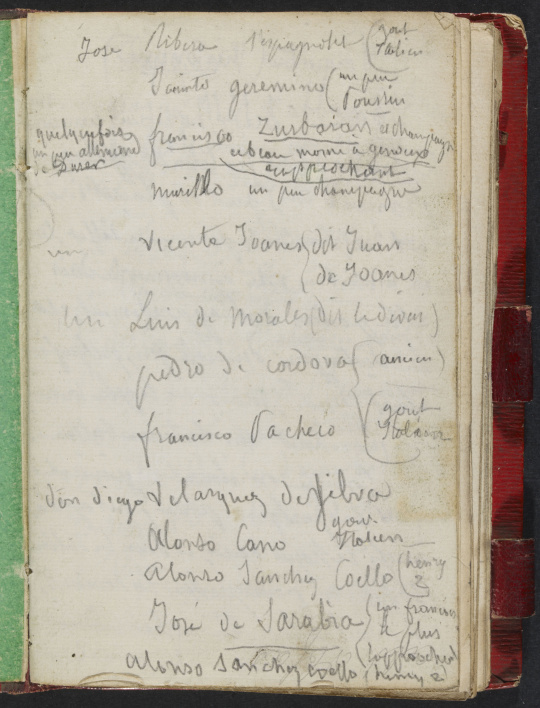 José Ribera l'espagnolet (gout Italien
Jacinto geremino (un peu Poussin
quelquefois
un peu allemand
de Durer
francisco Zurbaran et champagne
un beau moine a genoux
approchant
murillo un peu champagne
un vicente Joanes (dit Juan
de Joanes
un Luis de Morales (dit le divin)
pedro de cordova (ancien)
francisco Pacheco (gout Italien
don diego velasquez de silva
Alonso Cano gout Italien
Alonso Sanchez Coello (henry 2
José de Sarabia (un francisco
le plus
approchant
Alonso Sanchez Coello (henry 2